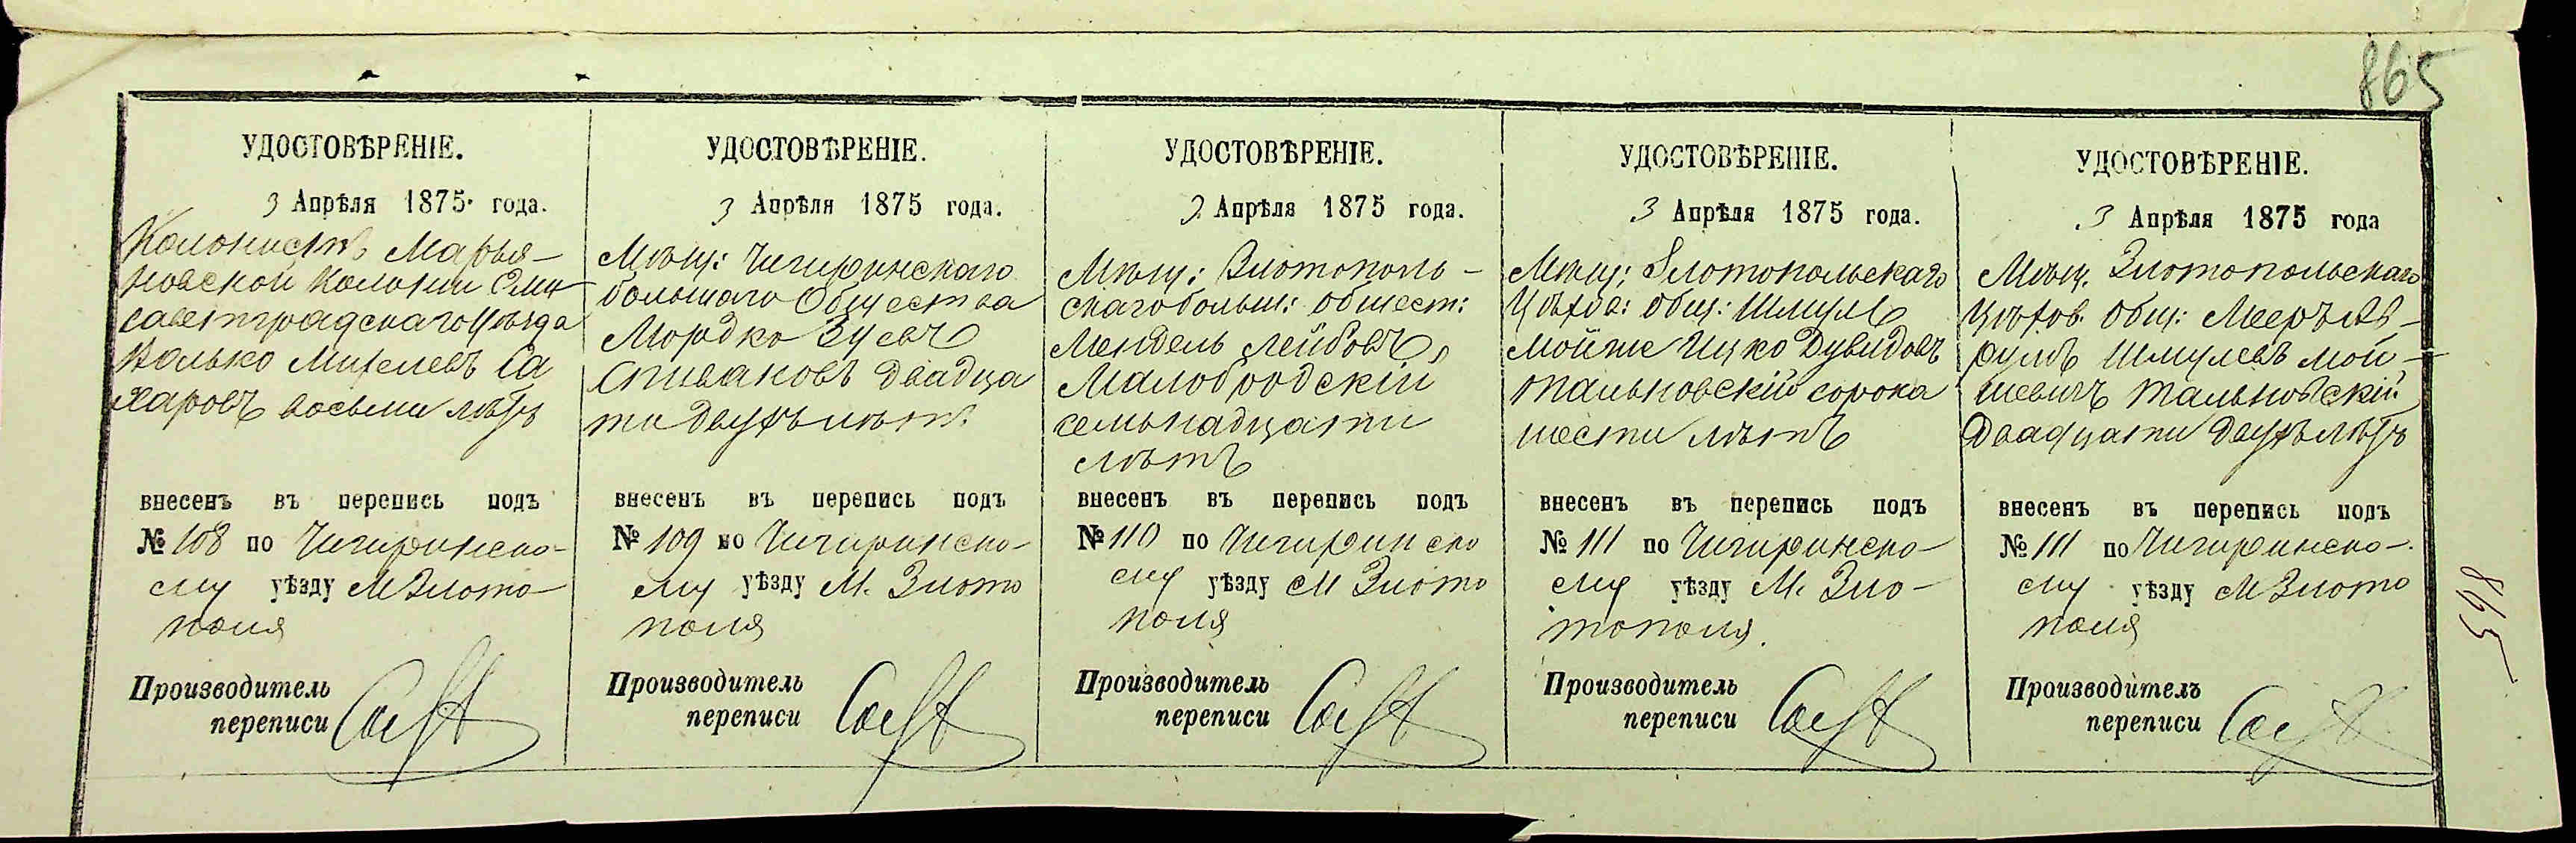 865
УДОСТОВѢРЕНІЕ.
3 Апрѣля 1875 года.
Колонистъ Марья-
новской Колоніи Ели
саветградскаго уѣзда
Волько Михелевъ Са
харовъ восьми лѣтъ
внесенъ въ перепись подъ
№ 108 по Чигиринско-
му уѣзду М Злото-
поля
Производитель
переписи
УДОСТОВѢРЕНІЕ.
3 Апрѣля 1875 года.
Мѣщ: Чигиринскаго
большаго Общества
Мордко Зусевъ
Спиваковъ двадца
ти двухъ лѣтъ.
внесенъ въ перепись подъ
№ 109 по Чигиринско-
му уѣзду М. Злото
поля
Производитель
переписи
УДОСТОВѢРЕНІЕ.
3 Апрѣля 1875 года.
Мѣщ: Златополь-
скаго больш: общест:
Мендель Лейбовъ
Малобродскій
семьнадцати
лѣтъ
внесенъ въ перепись подъ
№ 110 по Чигиринско
му уѣзду М Злото
поля
Производитель
переписи
УДОСТОВѢРЕНІЕ.
3 Апрѣля 1875 года.
Мѣщ: Злотопольскаго
Цѣхов: общ: Шмуль
Мойше Ицко Дувидовъ
Тальновскій сорока
шести лѣтъ
внесенъ въ перепись подъ
№ 111 по Чигиринско-
му уѣзду М. Зло-
тополя.
Производитель
переписи
УДОСТОВѢРЕНІЕ.
3 Апрѣля 1875 года
Мѣщ. Злотопольскаго
Цѣхов. общ: Мееръ Сѣ-
Шмулевъ Мой-
шевичъ Тальновскій
двадцати двухъ лѣтъ
внесенъ въ перепись подъ
№ 111 по Чигиринско-
му уѣзду М Злото
поля
Производитель
переписи
865